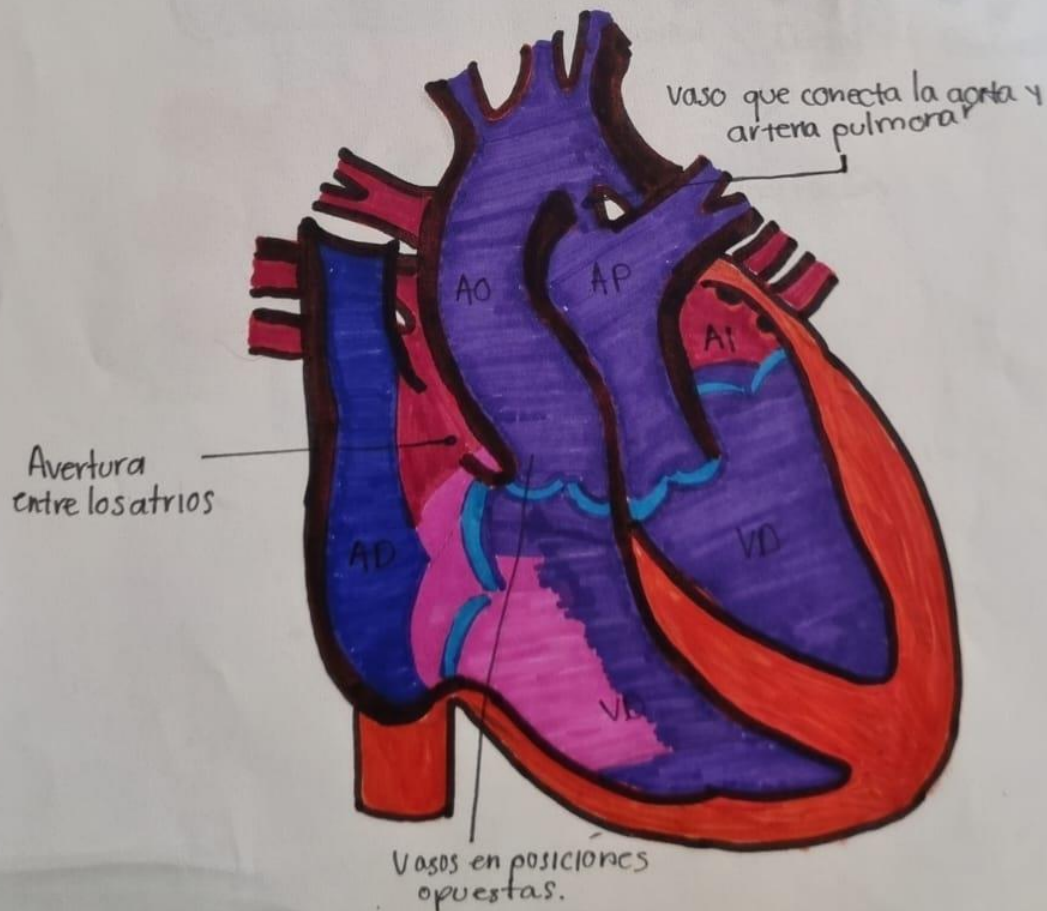 vaso que conecta la aorta y
arteria pulmonar
AO
AP
AI
Avertura
entre los atrios
AD
VD
Vasos en posiciónes
opuestas.